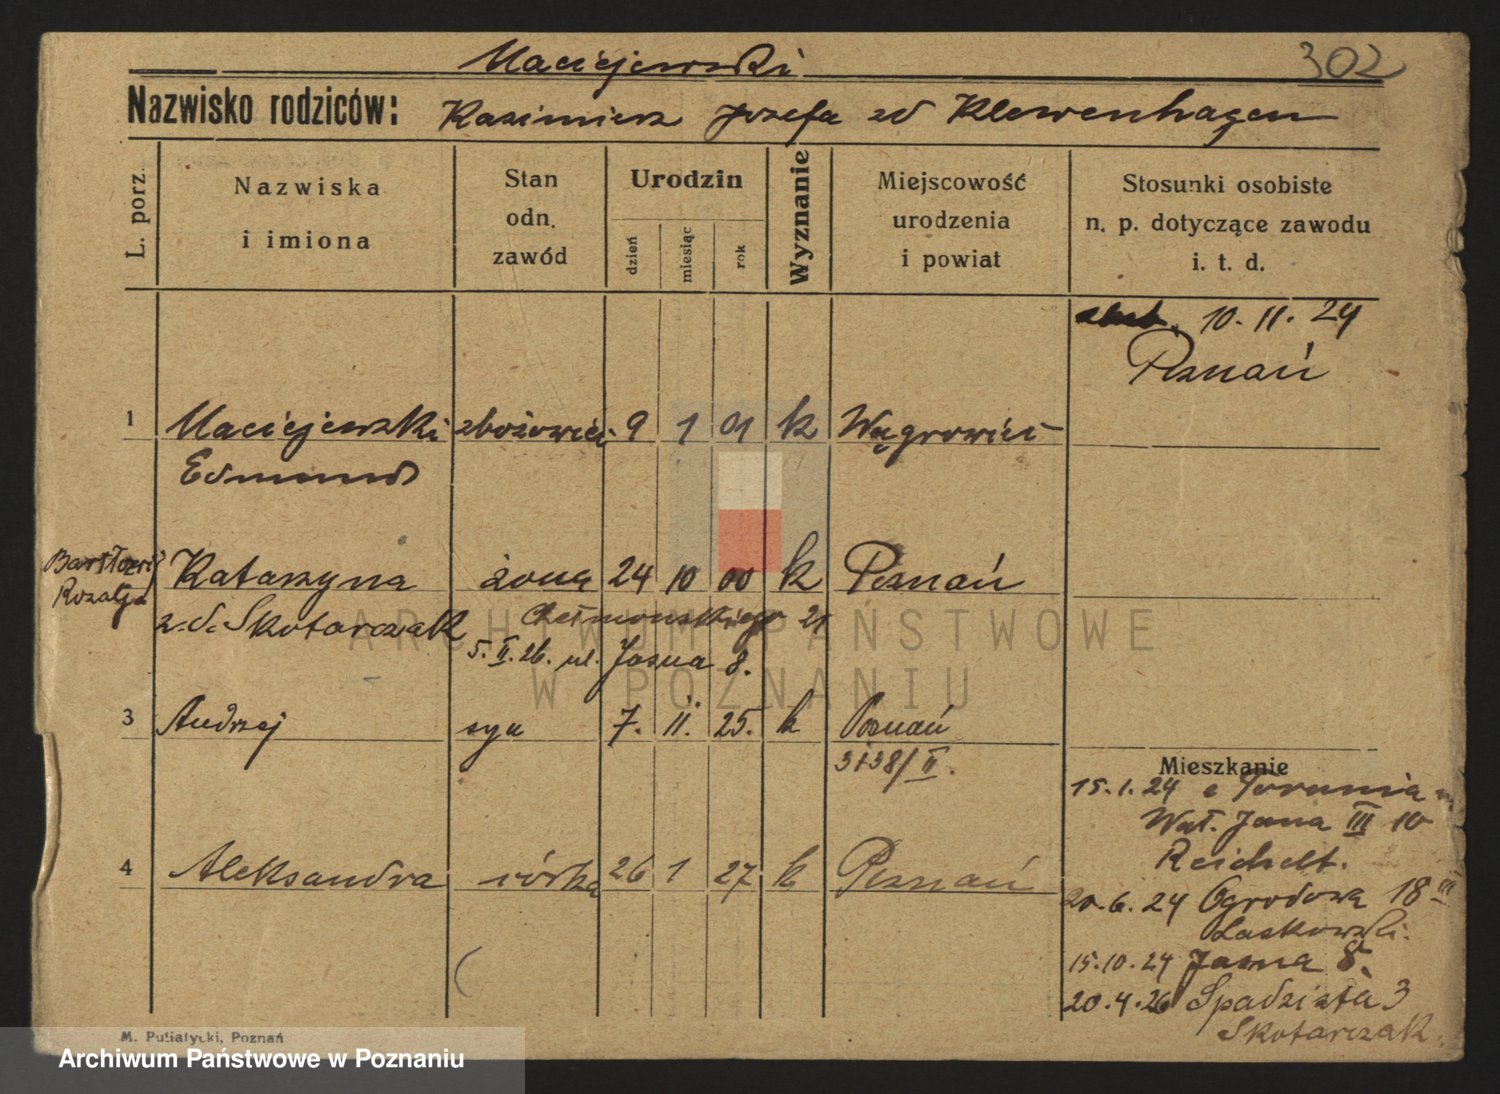 Maciejewski 302
Nazwisko rodziców: Kazimierz Józefa zd Klewenhagen
L. porz.
Nazwiska
i imiona
Stan
odn.
zawód
Urodzin
dzień
miesiąc
rok
Wyznanie
Miejscowość
urodzenia
i powiat
Stosunki osobiste
n. p. dotyczące zawodu
i. t. d.
ślub. 10. 11. 24
Poznań
1 Maciejewski zbożowiec 9 1 01 k Wągrowiec
Edmund
Rozalja
Katarzyna żona 24 10 00 k Poznań
z. d. Skotarczak Chełmońskiego 21
5. II. 26. ul. Jasna 8.
3 Andrzej syn 7. II. 25. k Poznań
3138/II.
Mieszkanie
15. 1. 24 z Torunia
Wał. Jana III 10
Reichelt.
4 Aleksandra córka 26 1 27 k Poznań
20. 6. 24 Ogrodowa 18 III
Laskowski.
15. 10. 24 Jasna 8.
20. 4. 26 Spadzista 3
Skotarczak.
M. Putiatycki, Poznań
ARCHIWUM PAŃSTWOWE
W POZNANIU
Archiwum Państwowe w Poznaniu